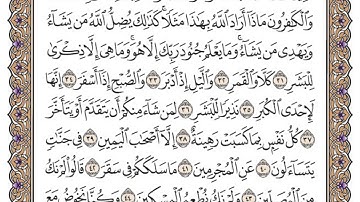 وَٱلْكَٰفِرُونَ مَاذَآ أَرَادَ ٱللَّهُ بِهَٰذَا مَثَلًا ۚ كَذَٰلِكَ يُضِلُّ ٱللَّهُ مَن يَشَآءُ
وَيَهْدِى مَن يَشَآءُ ۚ وَمَا يَعْلَمُ جُنُودَ رَبِّكَ إِلَّا هُوَ ۚ وَمَا هِىَ إِلَّا ذِكْرَىٰ
لِلْبَشَرِ ٣١ كَلَّا وَٱلْقَمَرِ ٣٢ وَٱلَّيْلِ إِذْ أَدْبَرَ ٣٣ وَٱلصُّبْحِ إِذَآ أَسْفَرَ ٣٤ إِنَّهَا
لَإِحْدَى ٱلْكُبَرِ ٣٥ نَذِيرًا لِّلْبَشَرِ ٣٦ لِمَن شَآءَ مِنكُمْ أَن يَتَقَدَّمَ أَوْ يَتَأَخَّرَ
٣٧ كُلُّ نَفْسٍۭ بِمَا كَسَبَتْ رَهِينَةٌ ٣٨ إِلَّآ أَصْحَٰبَ ٱلْيَمِينِ ٣٩ فِى جَنَّٰتٍ
يَتَسَآءَلُونَ ٤٠ عَنِ ٱلْمُجْرِمِينَ ٤١ مَا سَلَكَكُمْ فِى سَقَرَ ٤٢ قَالُوا۟ لَمْ نَكُ
مِنَ ٱلْمُصَلِّينَ ٤٣ وَلَمْ نَكُ نُطْعِمُ ٱلْمِسْكِينَ ٤٤ وَكُنَّا نَخُوضُ مَعَ